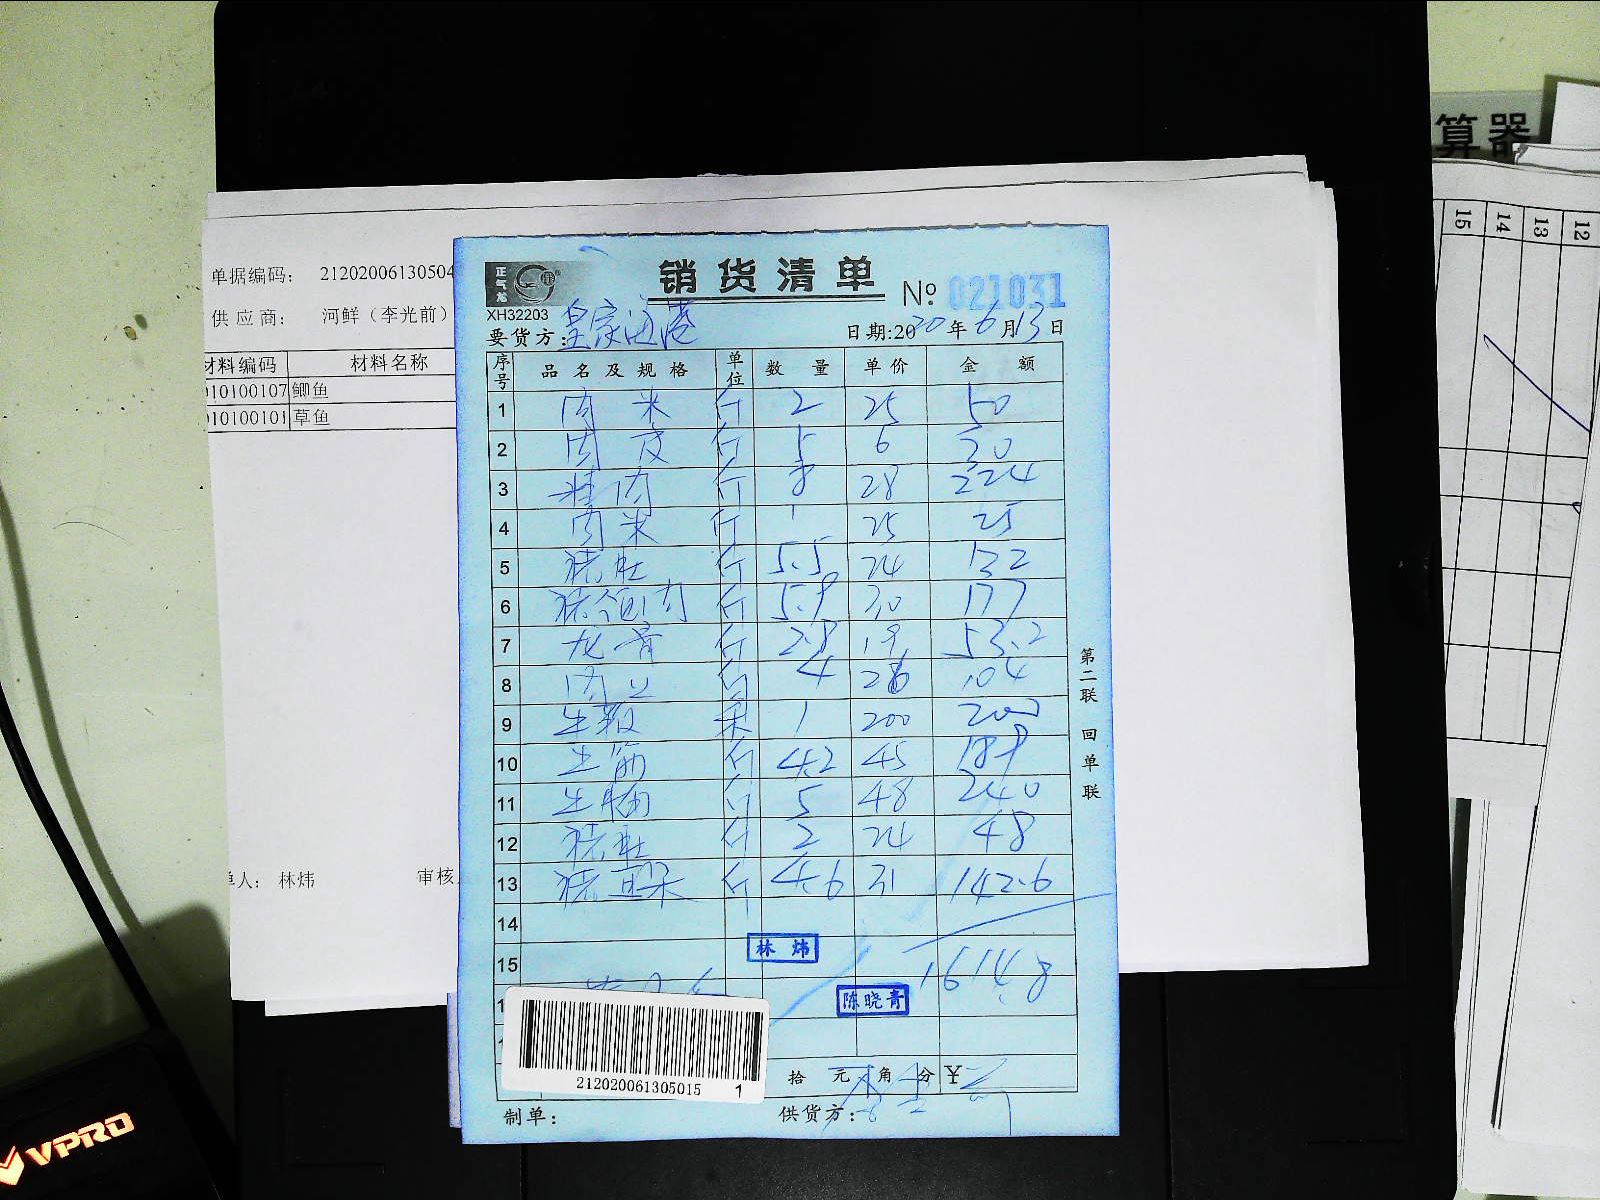 算器
15 14 13 12
单据编码: 21202006130504
供应商: 河鲜（李光前）
材料编码 材料名称
010100107 鲫鱼
010100101 草鱼
单人: 林炜 审核
正气龙
XH32203
销货清单
№ 021031
要货方: 皇家海港
日期:2020年6月13日
序号 品名及规格 单位 数量 单价 金额
1 肉米 斤 2 25 50
2 肉皮 斤 5 6 30
3 精肉 斤 8 28 224
4 肉米 斤 1 25 25
5 猪肚 斤 5.5 24 132
6 猪 肉 斤 5.9 30 177
7 龙骨 斤 2.8 19 53.2
8 肉 斤 4 26 104
9 1 200 200
10 牛筋 斤 4.2 45 189
11 牛腩 斤 5 48 240
12 猪肚 斤 2 24 48
13 猪 斤 4.6 31 142.6
14
林炜
15
1614.8
陈晓青
212020061305015 1
拾 元 角 分 ¥
制单: 供货方:
第二联 回单联
VPRO